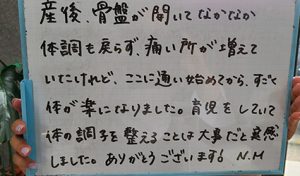 産後、骨盤が開いてなかなか
体調も戻らず、痛い所が増えて
いたけれど、ここに通い始めてから、すごく
体が楽になりました。育児をしていて
体の調子を整えることは大事だと実感
しました。ありがとうございます! N.M